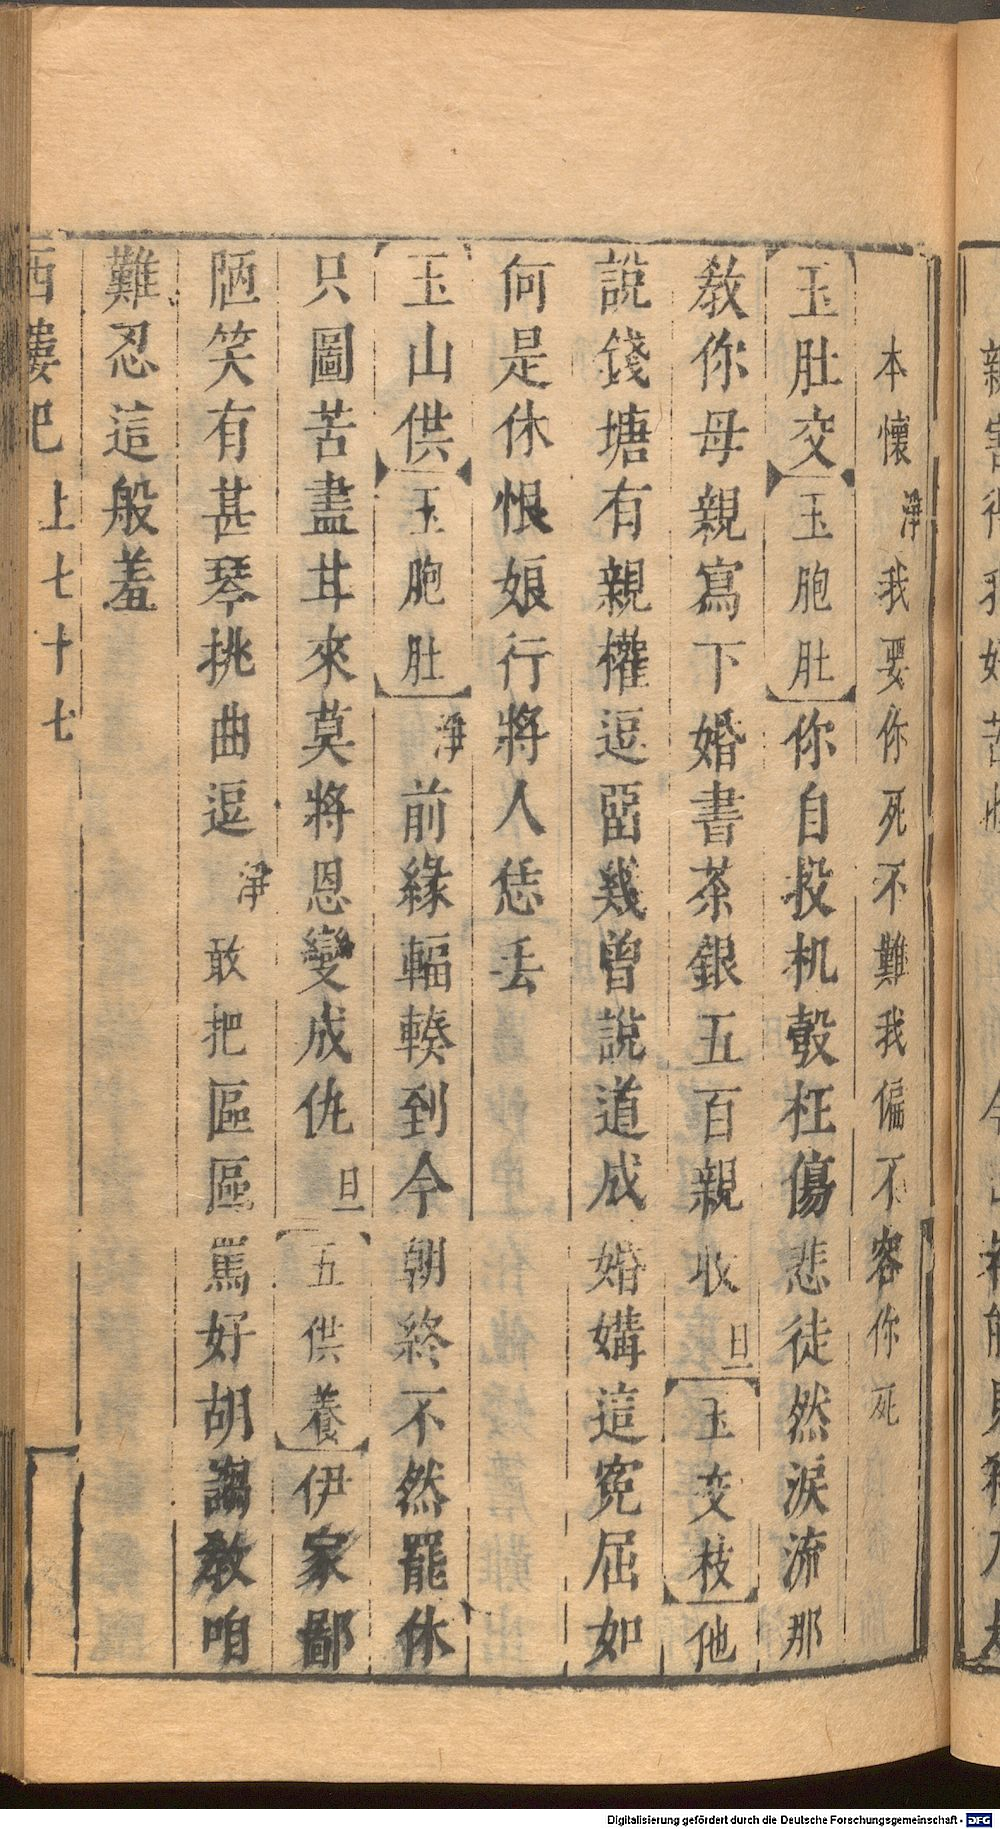 本懷淨我要你死不難我偏不容你死
玉肚交玉胞肚你自投机彀枉傷悲徒然淚流那
教你母親寫下婚書茶銀五百親收旦玉交枝他
說錢塘有親權逗畱幾曾說道成婚媾這寃屈如
何是休恨娘行將人恁丟
玉山供玉胞肚淨前緣輻輳到今朝終不然罷休
只圖苦盡甘來莫將恩變成仇旦五供養伊家鄙
陋笑有甚琴挑曲逗淨敢把區區罵好胡謅教咱
難忍這般羞
西樓記上七十七
Digitalisierung gefördert durch die Deutsche Forschungsgemeinschaft - DFG